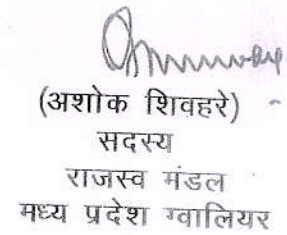 (अशोक शिवहरे)
सदस्य
राजस्व मंडल
मध्य प्रदेश ग्वालियर